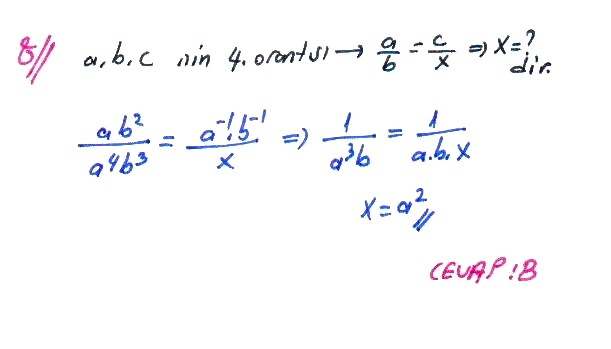 8// a, b, c nin 4. orantısı → a/b = c/x ⇒ x = ? dir.
ab²/a⁴b³ = a⁻¹.b⁻¹/x ⇒ 1/a³b = 1/a.b.x
x = a² //
CEVAP : B